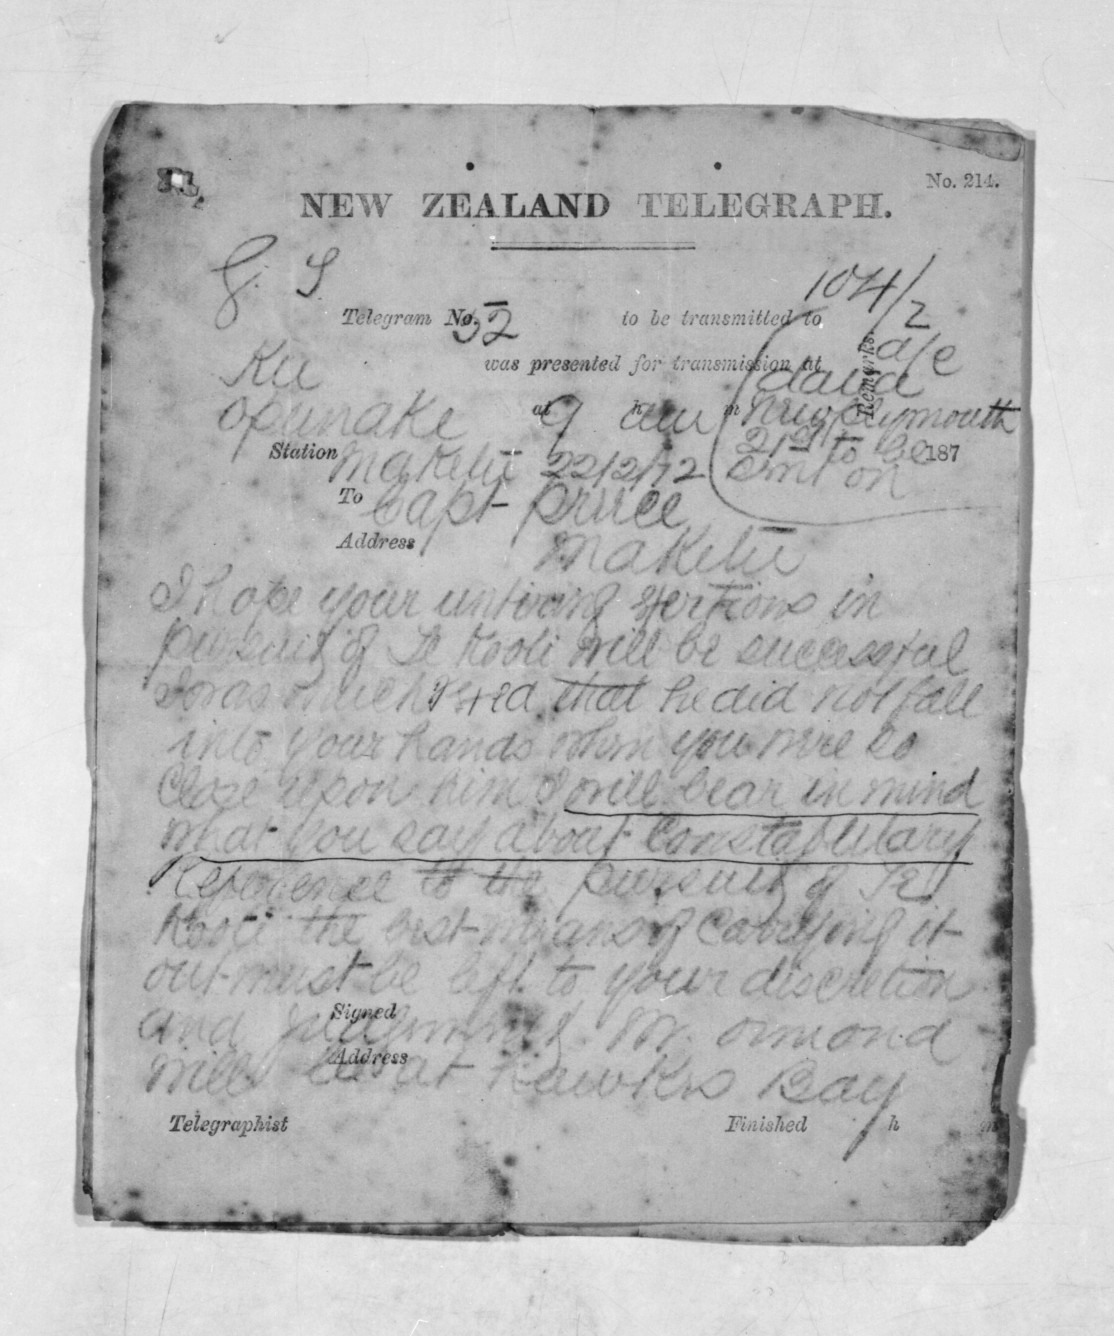 No. 214.
NEW ZEALAND TELEGRAPH.
G. S.
104/2
Telegram No. 52 to be transmitted to
a/e
was presented for transmission at
Remarks.
dated
opunake at 9 h am m New plymouth
21st to be 187
Station Maketu 22/2/72 sent on
To Capt- Pruce
Address Maketu
I hope your untiring exertions in
pursuit of Te Kooti will be successful
I was much vexed that he did not fall
into your hands when you were so
close upon him I will bear in mind
what you say about Constabulary
Reference to the pursuit of Te
Kooti the best means of carrying it
out must be left to your discretion
Signed
and judgment Mr. ormond
Address
will be at Hawkes Bay
Telegraphist Finished h m